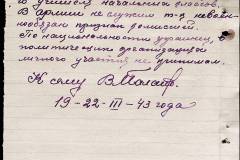 учителя начальных классов.
В армии не служил т-к невоен-
нообязан признан комиссией.
По национальности украинец, в
политических организаций
личного участия не принимал.
К сему В.
19-22-III-43 года